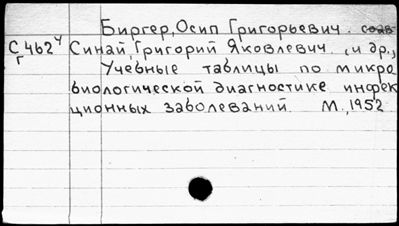 Биргер, Осип Григорьевич. соав
С 462ч Синай, Григорий Яковлевич, (и др.,)
Г Учебные таблицы по микро
биологической диагностике инфек
ционных заболеваний. М., 1952